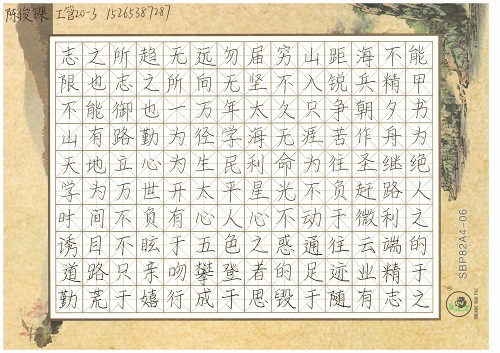 陈俊 工管20-3 15265387287
志之所趋无远勿届穷山距海不能
限也志之所向无坚不入锐兵精甲
不能御也一万年太久只争朝夕书
山有路勤为径学海无涯苦作舟为
天地立心为生民利命为往圣继绝
学为万世开太平星光不负赶路人
时间不负有心人心不动于微利之
诱目不眩于五色之惑通往云端的
道路只亲吻攀登者的足迹业精于
勤荒于嬉行成于思毁于随有志之
SBP82A4-06